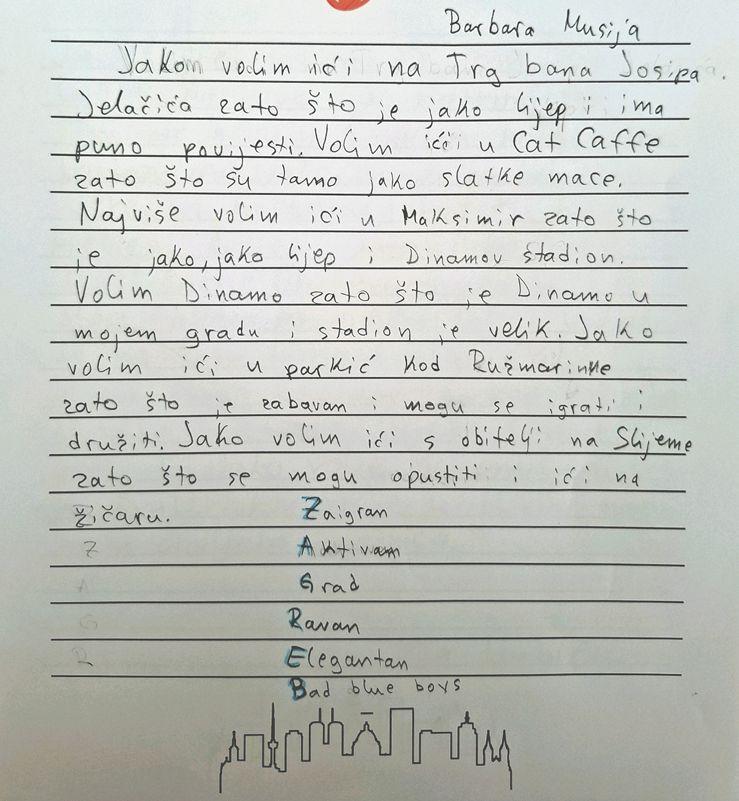 Barbara Musija
Jakom volim ići na Trg bana Josipa.
Jelačića zato što je jako lijep i ima
puno povijesti. Volim ići u Cat Caffe
zato što su tamo jako slatke mace.
Najviše volim ići u Maksimir zato što
je jako, jako lijep i Dinamov stadion.
Volim Dinamo zato što je Dinamo u
mojem gradu i stadion je velik. Jako
volim ići u parkić kod Ružmarinke
zato što je zabavan i mogu se igrati i
družiti. Jako volim ići s obitelji na Slijeme
zato što se mogu opustiti i ići na
žičaru. Zaigran
Z Aktivam
A Grad
G Ravan
R Elegantan
Bad blue boys